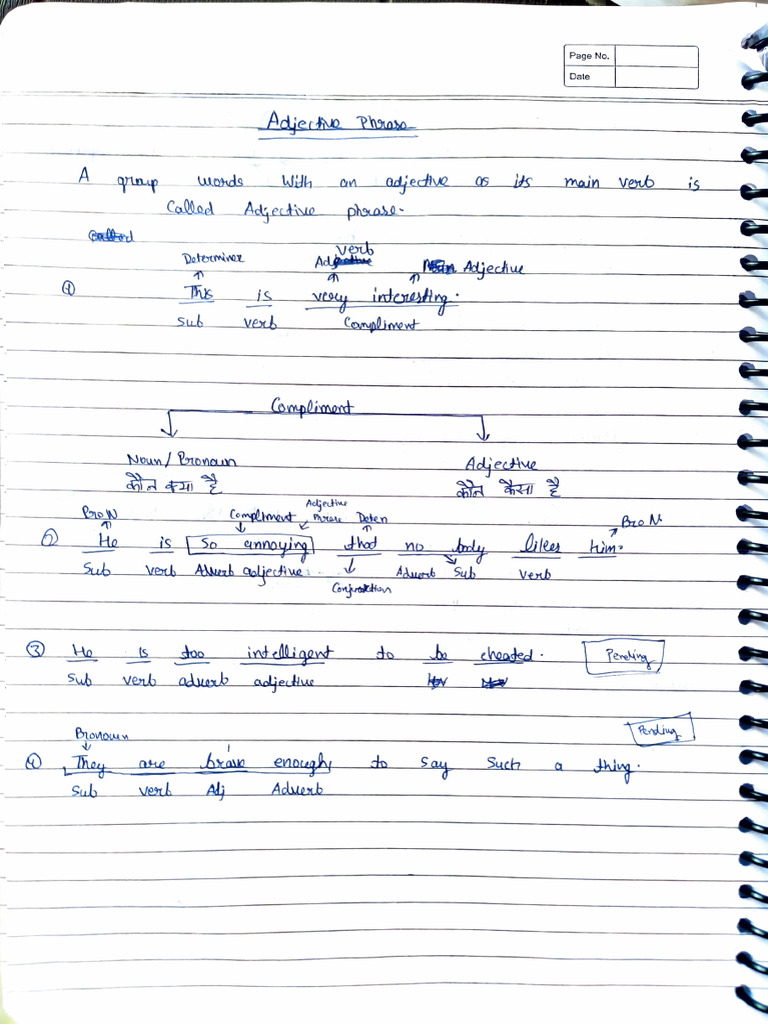 Page No.
Date
Adjective Phrase
A group words with an adjective as its main verb is
Called Adjective phrase.
Determiner verb Adjective
① This is very interesting.
sub verb Compliment
Compliment
Noun/Pronoun Adjective
कौन क्या है कौन कैसा है
Pro N Compliment Adjective Phrase Deten Pro N.
② He is so annoying that no body likes him.
Sub verb Adverb adjective Adverb Sub verb
Conjunction
③ He is too intelligent to be cheated. Pending
sub verb adverb adjective
Pronoun Pending
④ They are brave enough to say such a thing.
Sub verb Adj Adverb